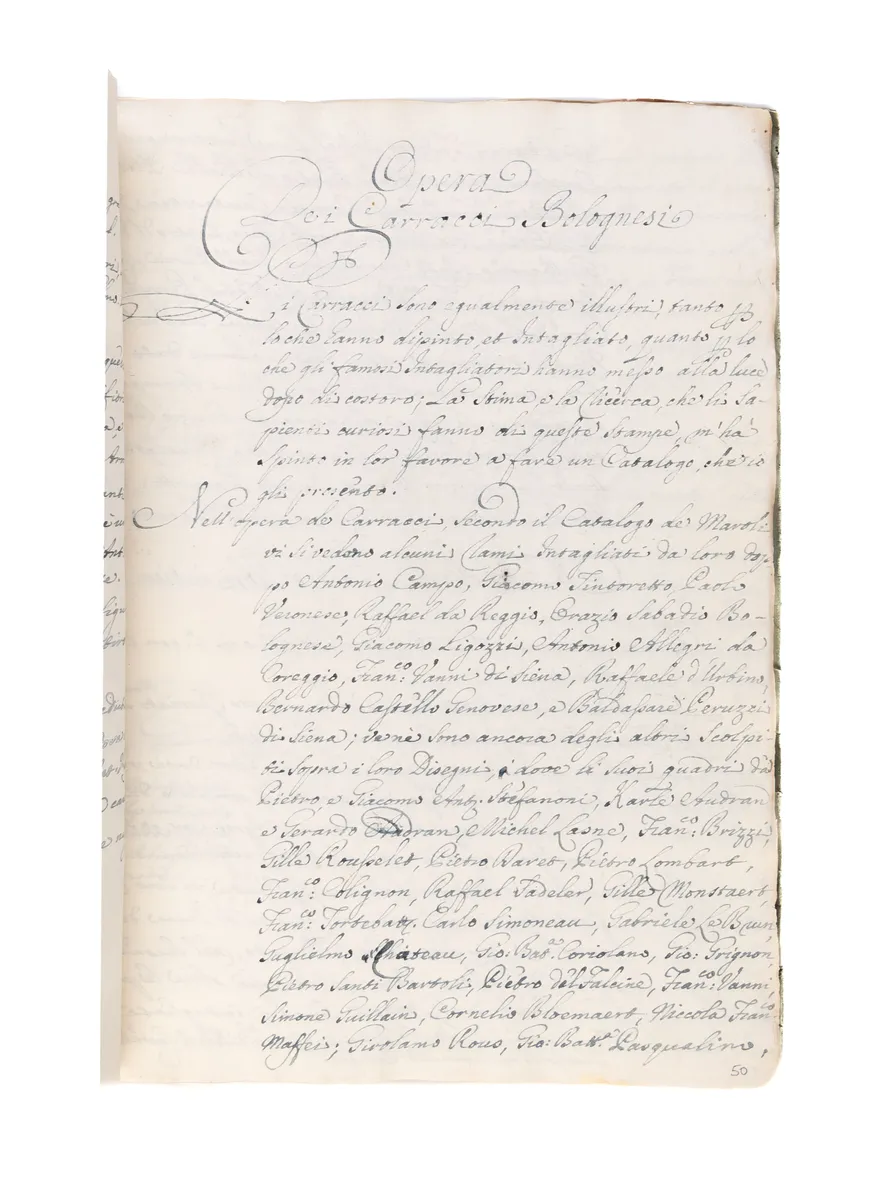 Opera
Dei Carracci Bolognesi
i Carracci sono egualmente illustri, tanto p
lo che hanno dipinto, et Intagliato, quanto p lo
che gli famosi Intagliatori hanno messo alla luce
dopo di costoro; La Stima, e la Ricerca, che li Sa-
pienti curiosi fanno di queste stampe, m'hà
spinto in lor favore a fare un Catalogo, che io
gli presento.
Nell'opera de Carracci, secondo il Catalogo de Maroli
vi si vedono alcuni Rami Intagliati da loro dop
po Antonio Campo, Giacomo Tintoretto, Paolo
Veronese, Raffael da Reggio, Orazio Sabadio Bo-
lognese, Giacomo Ligozzi, Antonio Allegri da
Coreggio, Fran.co Vanni di Siena, Raffaele d'Urbino,
Bernardo Castello Genovese, e Baldassare Peruzzi
di Siena; ve nè sono ancora degli altri Scolpi-
ti sopra i loro Disegni, ò dove li suoi quadri da
Pietro, e Giacomo Ant. Stefanoni, Karle Audran
e Gerardo Audran, Michel Lasne, Fran.co Brizzi,
Gille Rousselet, Pietro Daret, Pietro Lombart,
Fran.co Colignon, Raffael Sadeler, Gille Monstaert,
Fran.co Tortebatt. Carlo Simoneau, Gabriele Le Brun,
Guglielmo Chateau, Gio: Bat.a Coriolano, Gio: Grignon,
Pietro Santi Bartoli, Pietro del Falcine, Fran.co Vanni,
Simone Guillain, Cornelio Bloemaert, Niccola Fran.co
Maffei; Girolamo Rous, Gio: Batt.a Pasqualino,
50